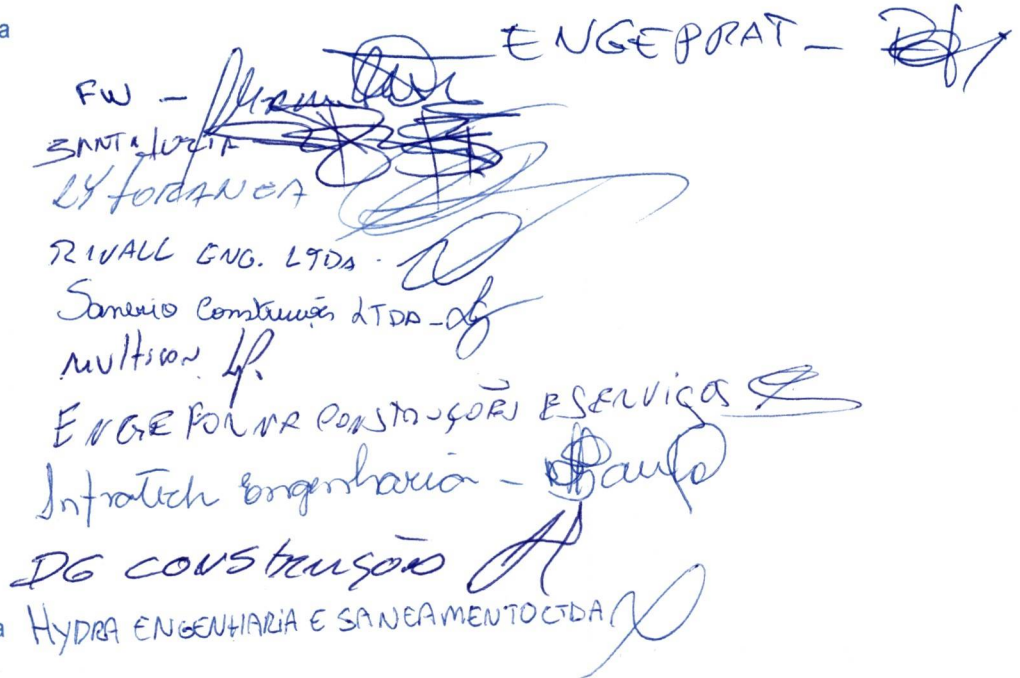 a
ENGEPRAT -
FW -
SANTA LUZIA
LYTORANEA
RIVALL ENG. LTDA.
Sanerio Construções LTDA -
Multicon
ENGEFORMA CONSTRUÇÕES E SERVIÇOS
Infratech Engenharia -
DG CONSTRUÇÃO
a HYDRA ENGENHARIA E SANEAMENTO LTDA